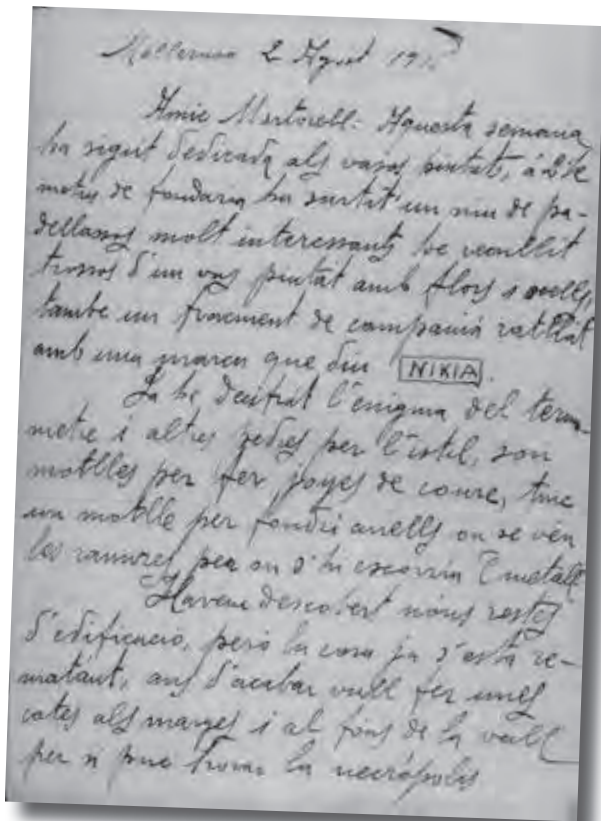 Mollerusa 2 Agost 191
Amic Martorell. Aquesta semana
ha sigut dedicada als vasos pintats, á 2'50
metres de fondaria ha surtit un niu de pa-
dellassos molt interessants he recullit
trossos d'un vas pintat amb flors i ocells,
tambe un fracment de campaniá ratllat
amb una marca que diu NIKIA.
Ja he desifrat l'enigma del termo-
metre i altres pedres per l'estil, son
motlles per fer joyes de coure, tinc
un motlle per fondre anells on se veu
les ranures per on s'hi escorria l metall
Havem descobert nous restes
d'edificació, peró la cosa ja s'está re-
matant, ans d'acabar vull fer unes
cates als marges i al fons de la vall
per si puc trovar la necrópolis